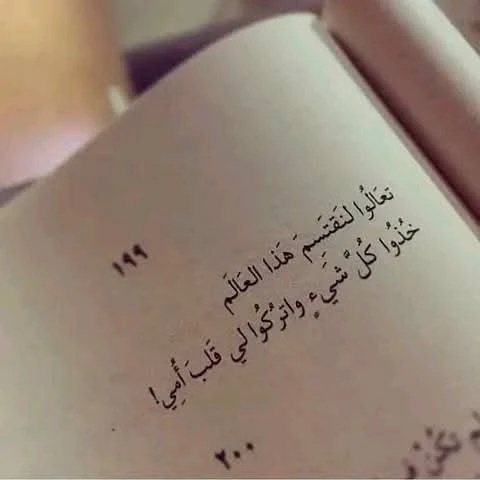 ١٩٩
تعَالُوا لنَقتَسِمَ هَذا العَالَم
خُذُوا كُلَّ شَيَءٍ واترُكُوا لي قَلبَ أُمِي!
٢٠٠